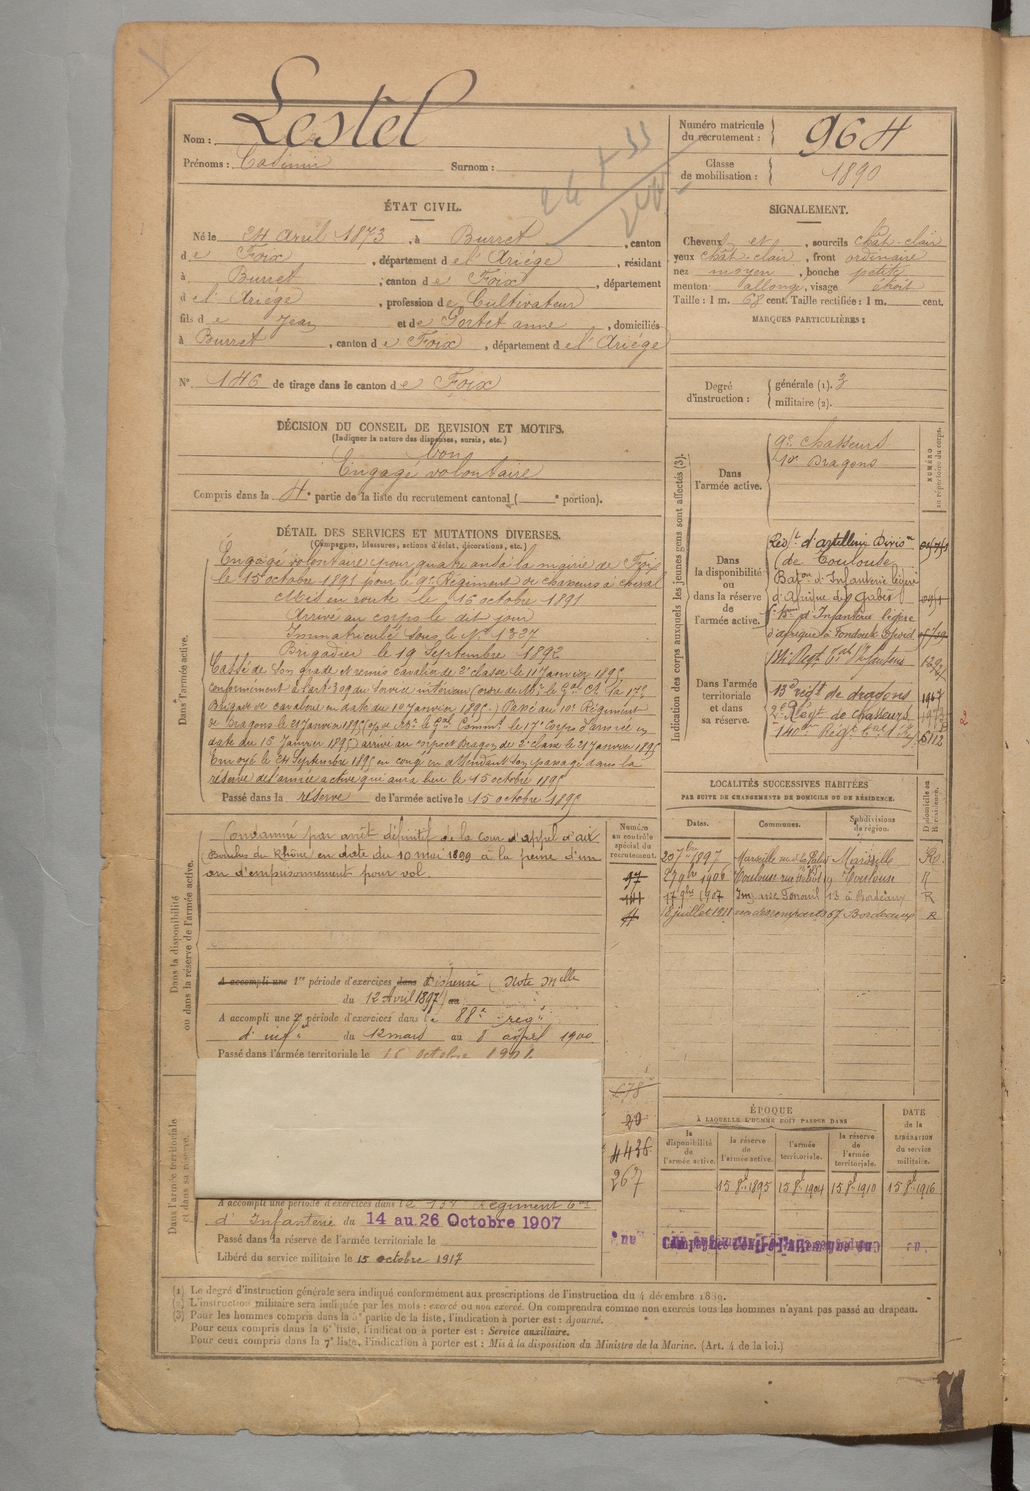 Nom : Lestel
Prénoms : Casimir Surnom :
Numéro matricule du recrutement : 964
Classe de mobilisation : 1890
ÉTAT CIVIL.
Né le 24 Avril 1873, à Burret, canton
de Foix, département de l'Ariège, résidant
à Burret, canton de Foix, département
de l'Ariège, profession de Cultivateur
fils de Jean et de Portet anne, domiciliés
à Burret, canton de Foix, département de l'Ariège
N° 146 de tirage dans le canton de Foix
SIGNALEMENT.
Cheveux et, sourcils chât-clair
yeux chât-clair, front ordinaire
nez moyen, bouche petite
menton allongé, visage étroit
Taille : 1 m. 68 cent. Taille rectifiée : 1 m. cent.
MARQUES PARTICULIÈRES :
Degré d'instruction : générale (1). 3
militaire (2).
DÉCISION DU CONSEIL DE REVISION ET MOTIFS.
(Indiquer la nature des dispenses, sursis, etc.)
bon
Engagé volontaire
Compris dans la 4e partie de la liste du recrutement cantonal ( e portion).
DÉTAIL DES SERVICES ET MUTATIONS DIVERSES.
(Campagnes, blessures, actions d'éclat, décorations, etc.)
Dans l'armée active.
Engagé volontaire pour quatre ans à la mairie de Foix
le 15 octobre 1891 pour le 9e Régiment de chasseurs à cheval
Mis en route le 15 octobre 1891
Arrivé au corps le dit jour
Immatriculé sous le No 1327
Brigadier le 19 Septembre 1892
Cassé de son grade et remis cavalier de 2e classe le 11 Janvier 1895
conformément à l'art 309 du Service intérieur (ordre de Mr le Gal Ct la 17e
Brigade de cavalerie en date du 10 Janvier 1895) Passé au 10e Régiment
de Dragons le 21 Janvier 1895 (os de Mr le Gal Commt le 17e Corps d'armée en
date du 15 Janvier 1895) arrivé au corps et Dragon de 2e classe le 21 Janvier 1895
Envoyé le 24 Septembre 1895 en congé en attendant son passage dans la
réserve de l'armée active qui aura lieu le 15 octobre 1895
Passé dans la réserve de l'armée active le 15 octobre 1895
Indication des corps auxquels les jeunes gens sont affectés (3).
NUMÉRO au répertoire du corps.
Dans l'armée active.
9e chasseurs
10e Dragons
Dans la disponibilité ou dans la réserve de l'armée active.
d'artillerie Divisre
(de Toulouse)
Baton d'Infanterie légère
d'Afrique de Gabès
d'Infanterie légère
d'afrique à
Dans l'armée territoriale et dans sa réserve.
13e régt de dragons
2e Régt de chasseurs
6112
LOCALITÉS SUCCESSIVES HABITÉES
PAR SUITE DE CHANGEMENTS DE DOMICILE OU DE RÉSIDENCE.
Dates. Communes. Subdivisions de région. D. domicile ou R. résidence.
20 7bre 1897 Marseille Marseille R.
Toulouse Toulouse R
17 9bre 1907 13 à Bordeaux R
18 juillet 1911 67 Bordeaux R
Dans la disponibilité ou dans la réserve de l'armée active.
Numéro au contrôle spécial du recrutement.
Condamné par arrêt définitif de la cour d'appel d'aix
(Bouches du Rhône) en date du 10 mai 1899 à la peine d'un
an d'emprisonnement pour vol.
A accompli une 1re période d'exercices dans Dispensé (Note Melle
du 12 Avril 1897) au
A accompli une 2e période d'exercices dans le 88e régt
d'inf du 12 mars au 8 avril 1900
Passé dans l'armée territoriale le 15 octobre 1904
Dans l'armée territoriale et dans sa réserve.
20
4436
267
A accompli une période d'exercices dans le Régiment
d'Infanterie du 14 au 26 Octobre 1907
Passé dans la réserve de l'armée territoriale le
Libéré du service militaire le 15 octobre 1917
ÉPOQUE
À LAQUELLE L'HOMME DOIT PASSER DANS
la disponibilité de l'armée active. la réserve de l'armée active. l'armée territoriale. la réserve de l'armée territoriale.
DATE de la LIBÉRATION du service militaire.
15 8bre 1895 15 8bre 1904 15 8bre 1910 15 8bre 1916
(1) Le degré d'instruction générale sera indiqué conformément aux prescriptions de l'instruction du 4 décembre 1889.
(2) L'instruction militaire sera indiquée par les mots : exercé ou non exercé. On comprendra comme non exercés tous les hommes n'ayant pas passé au drapeau.
(3) Pour les hommes compris dans la 5e partie de la liste, l'indication à porter est : Ajourné.
Pour ceux compris dans la 6e liste, l'indication à porter est : Service auxiliaire.
Pour ceux compris dans la 7e liste, l'indication à porter est : Mis à la disposition du Ministre de la Marine. (Art. 4 de la loi.)